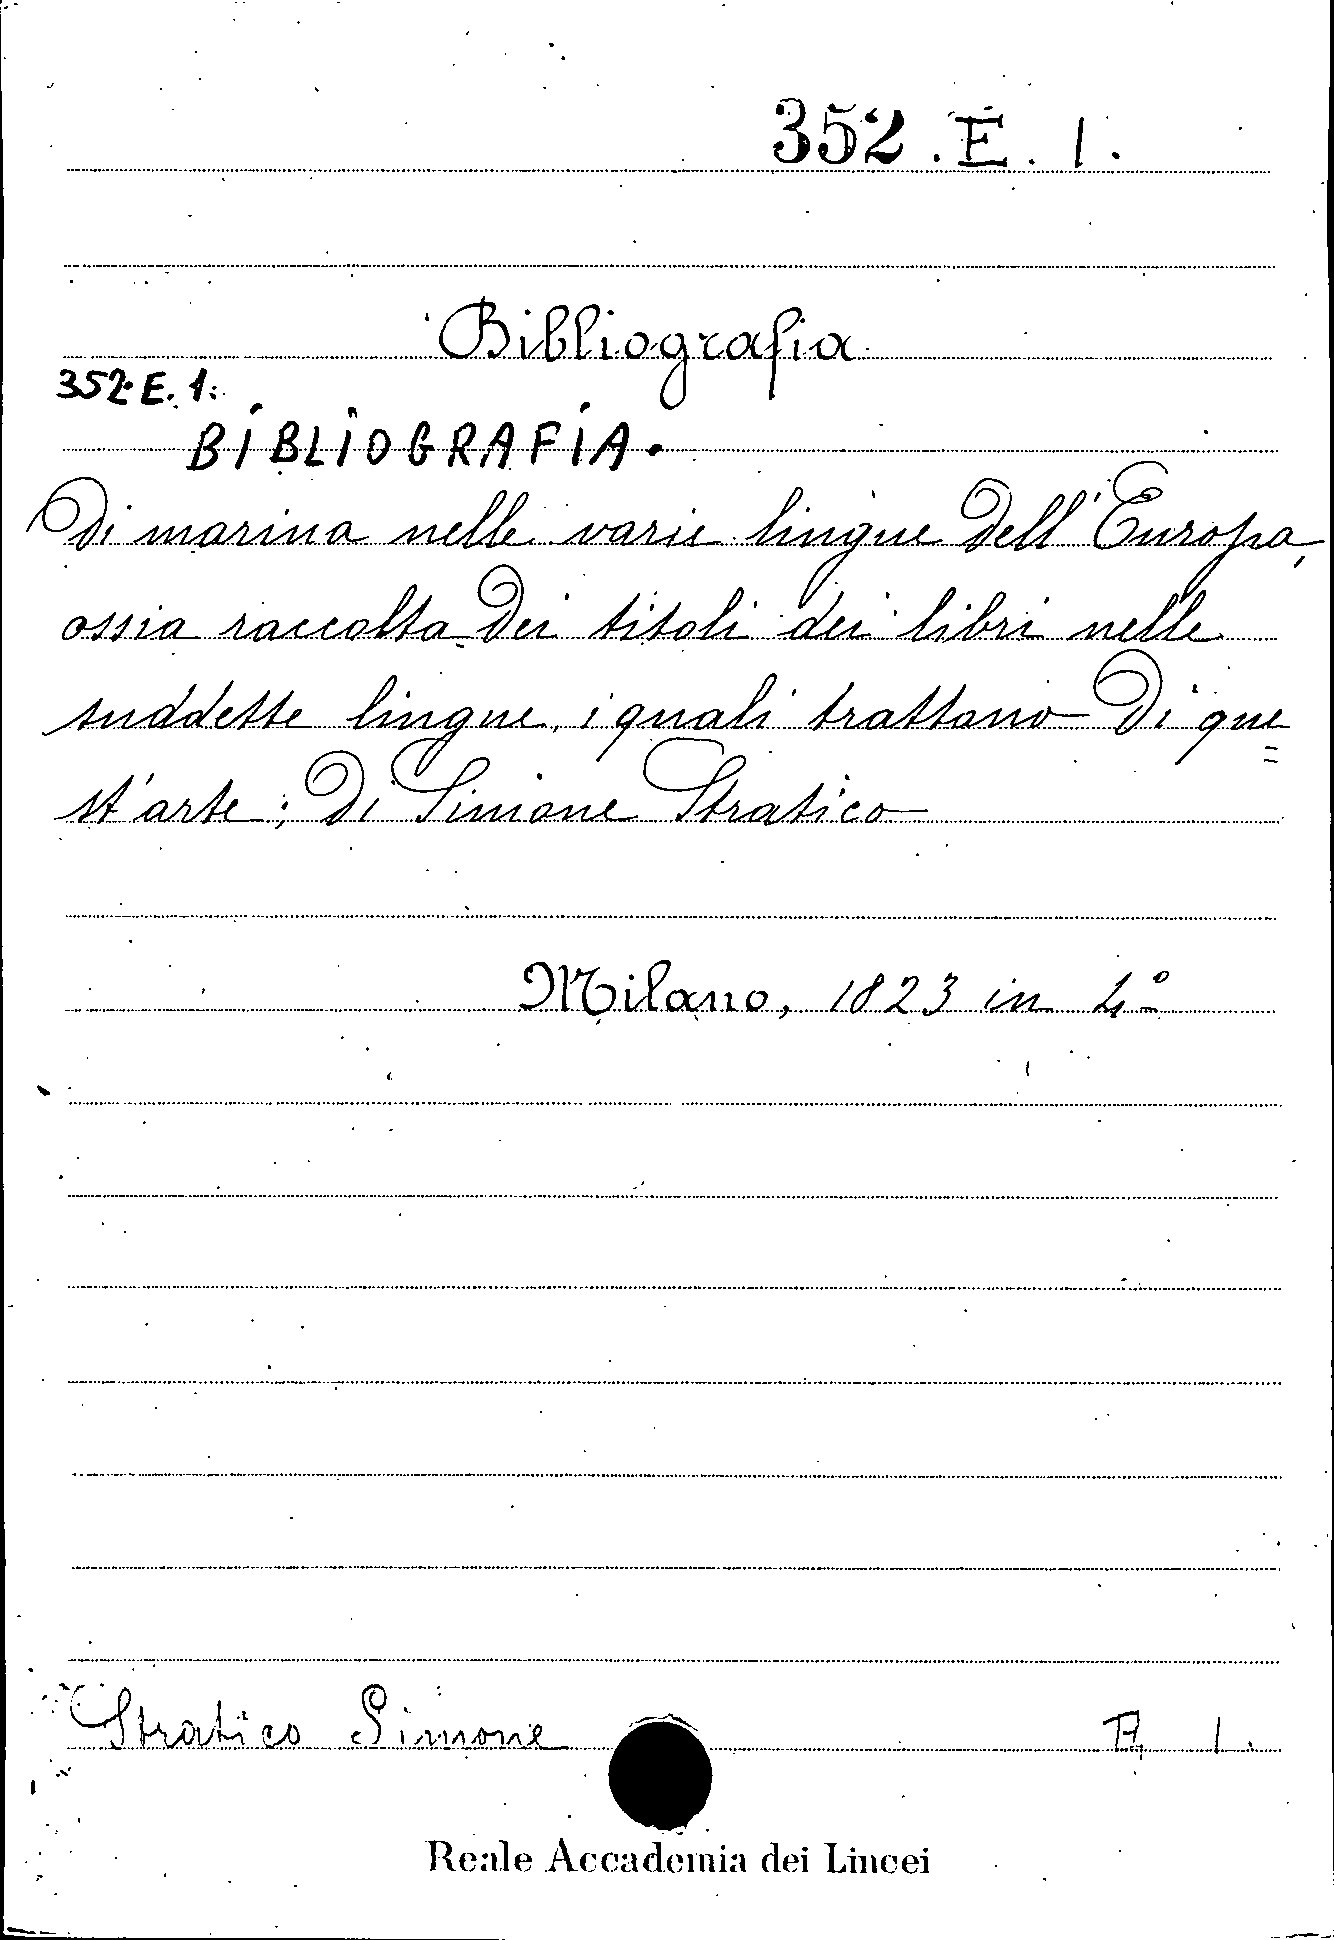 352. E. 1.
Bibliografia
352. E. 1.
BIBLIOGRAFIA.
Di marina nelle varie lingue dell'Europa,
ossia raccolta dei titoli dei libri nelle
suddette lingue, i quali trattano di que=
st'arte; di Simone Stratico
Milano, 1823 in 4°
Stratico Simone 1.
Reale Accademia dei Lincei